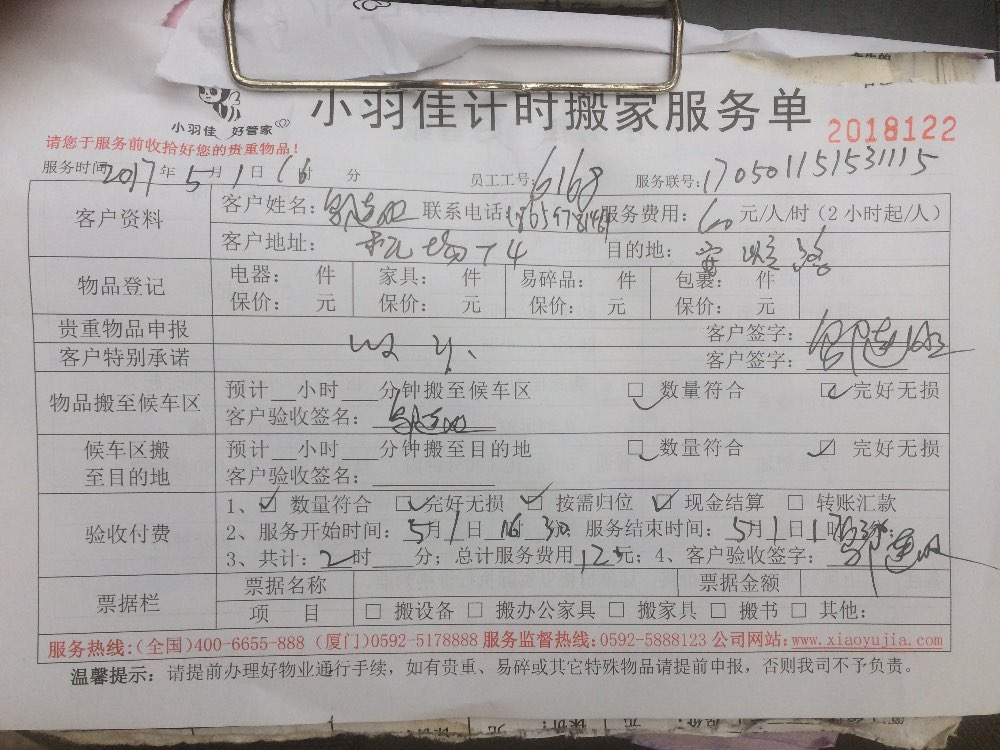 小羽佳 好管家
小羽佳计时搬家服务单
2018122
请您于服务前收拾好您的贵重物品！
服务时间 2017年5月1日16时 分 员工工号：6168 服务联号：170501151531115
客户资料
客户姓名： 联系电话： 服务费用：60元/人/时（2小时起/人）
客户地址：机场T4 目的地：
物品登记
电器： 件 家具： 件 易碎品： 件 包裹： 件
保价： 元 保价： 元 保价： 元 保价： 元
贵重物品申报 客户签字：
客户特别承诺 客户签字：
物品搬至候车区
预计__小时___分钟搬至候车区 ☑ 数量符合 ☑ 完好无损
客户验收签名：
候车区搬
至目的地
预计__小时___分钟搬至目的地 ☑ 数量符合 ☑ 完好无损
客户验收签名：
验收付费
1、☑ 数量符合 ☑ 完好无损 ☑ 按需归位 ☑ 现金结算 □ 转账汇款
2、服务开始时间：5月1日16时30 服务结束时间：5月1日17
3、共计：2时___分；总计服务费用 元；4、客户验收签字：
票据栏
票据名称 票据金额
项 目 □ 搬设备 □ 搬办公家具 □ 搬家具 □ 搬书 □ 其他：
服务热线：（全国）400-6655-888（厦门）0592-5178888 服务监督热线：0592-5888123 公司网站：www.xiaoyujia.com
温馨提示：请提前办理好物业通行手续，如有贵重、易碎或其它特殊物品请提前申报，否则我司不予负责。